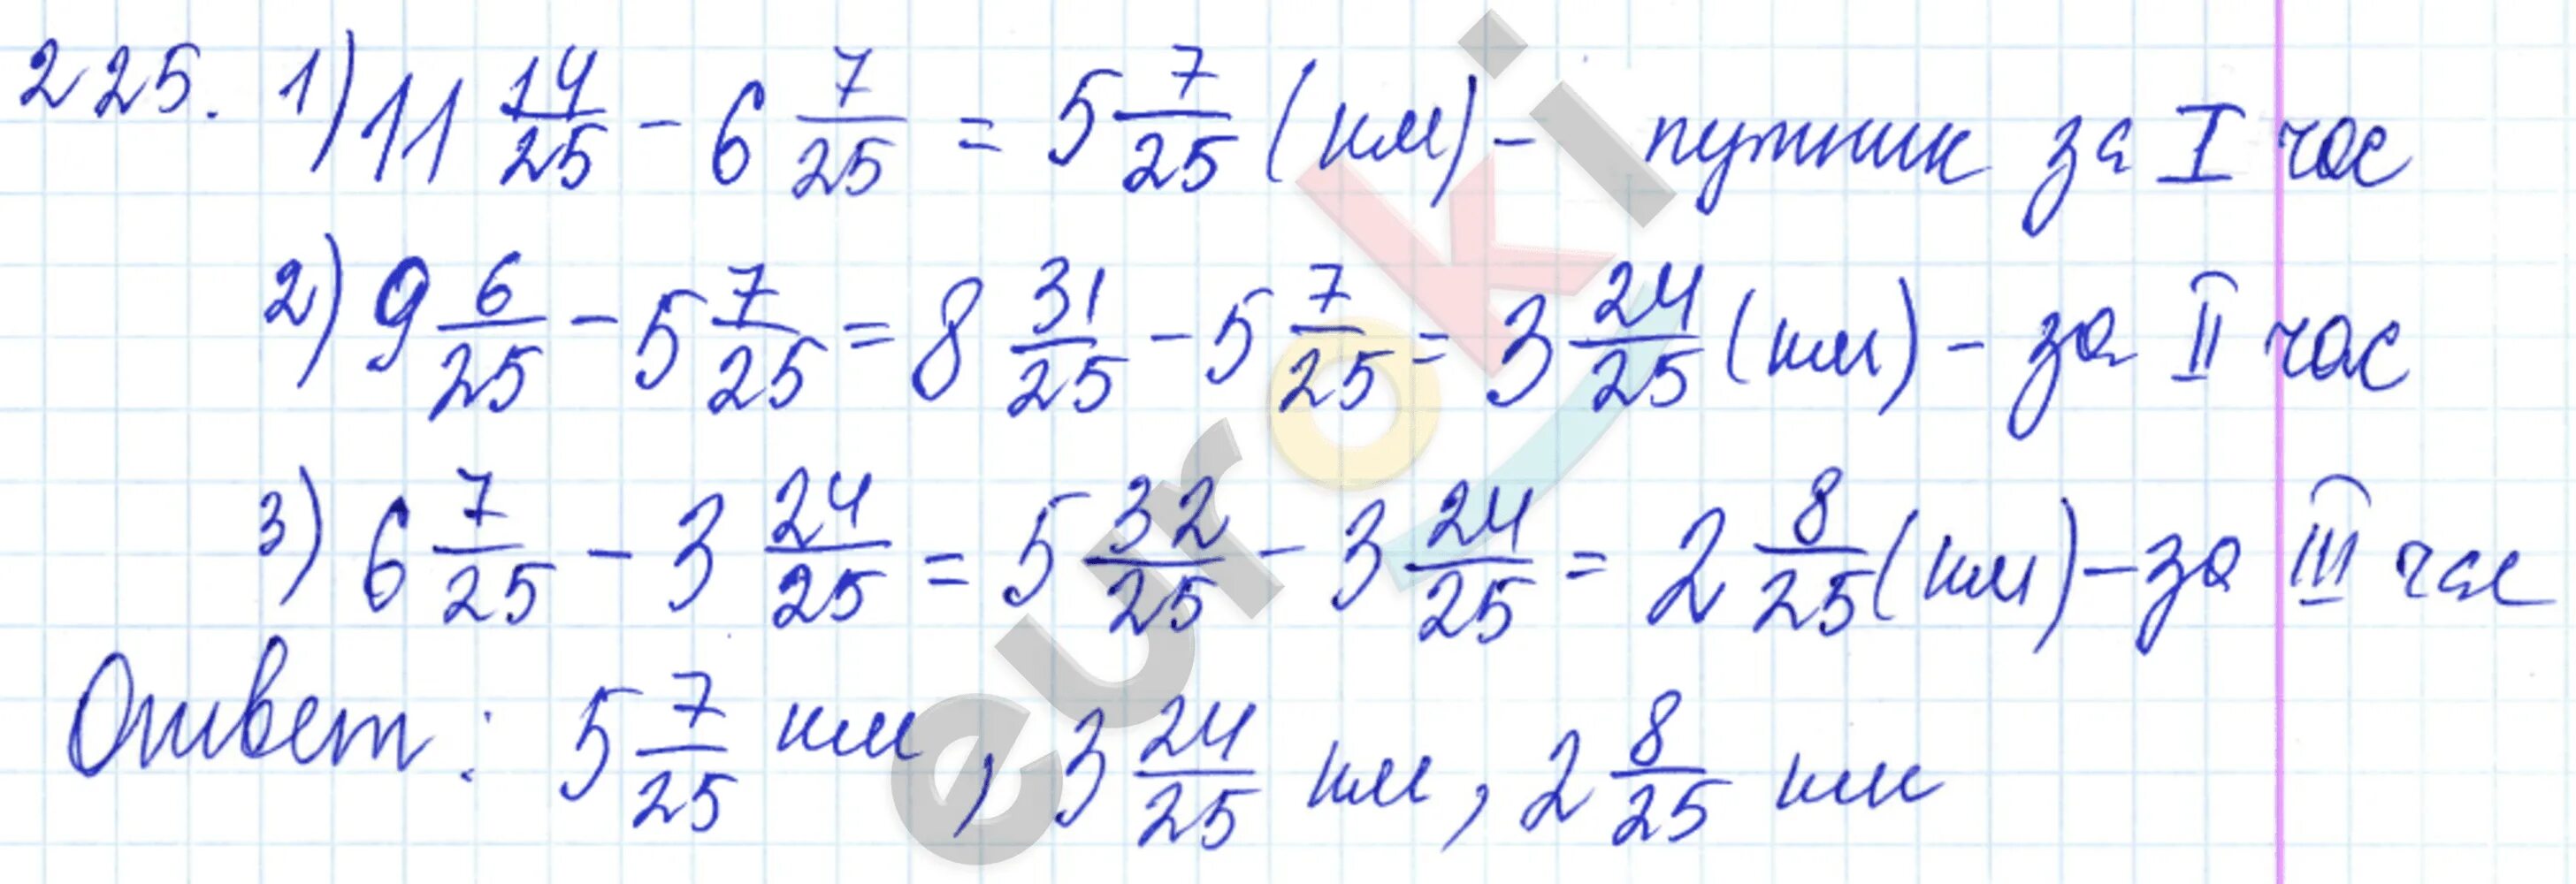 225. 1) 11 14/25 - 6 7/25 = 5 7/25 (км) - путник за I час
2) 9 6/25 - 5 7/25 = 8 31/25 - 5 7/25 = 3 24/25 (км) - за II час
3) 6 7/25 - 3 24/25 = 5 32/25 - 3 24/25 = 2 8/25 (км) - за III час
Ответ: 5 7/25 км, 3 24/25 км, 2 8/25 км
euroki